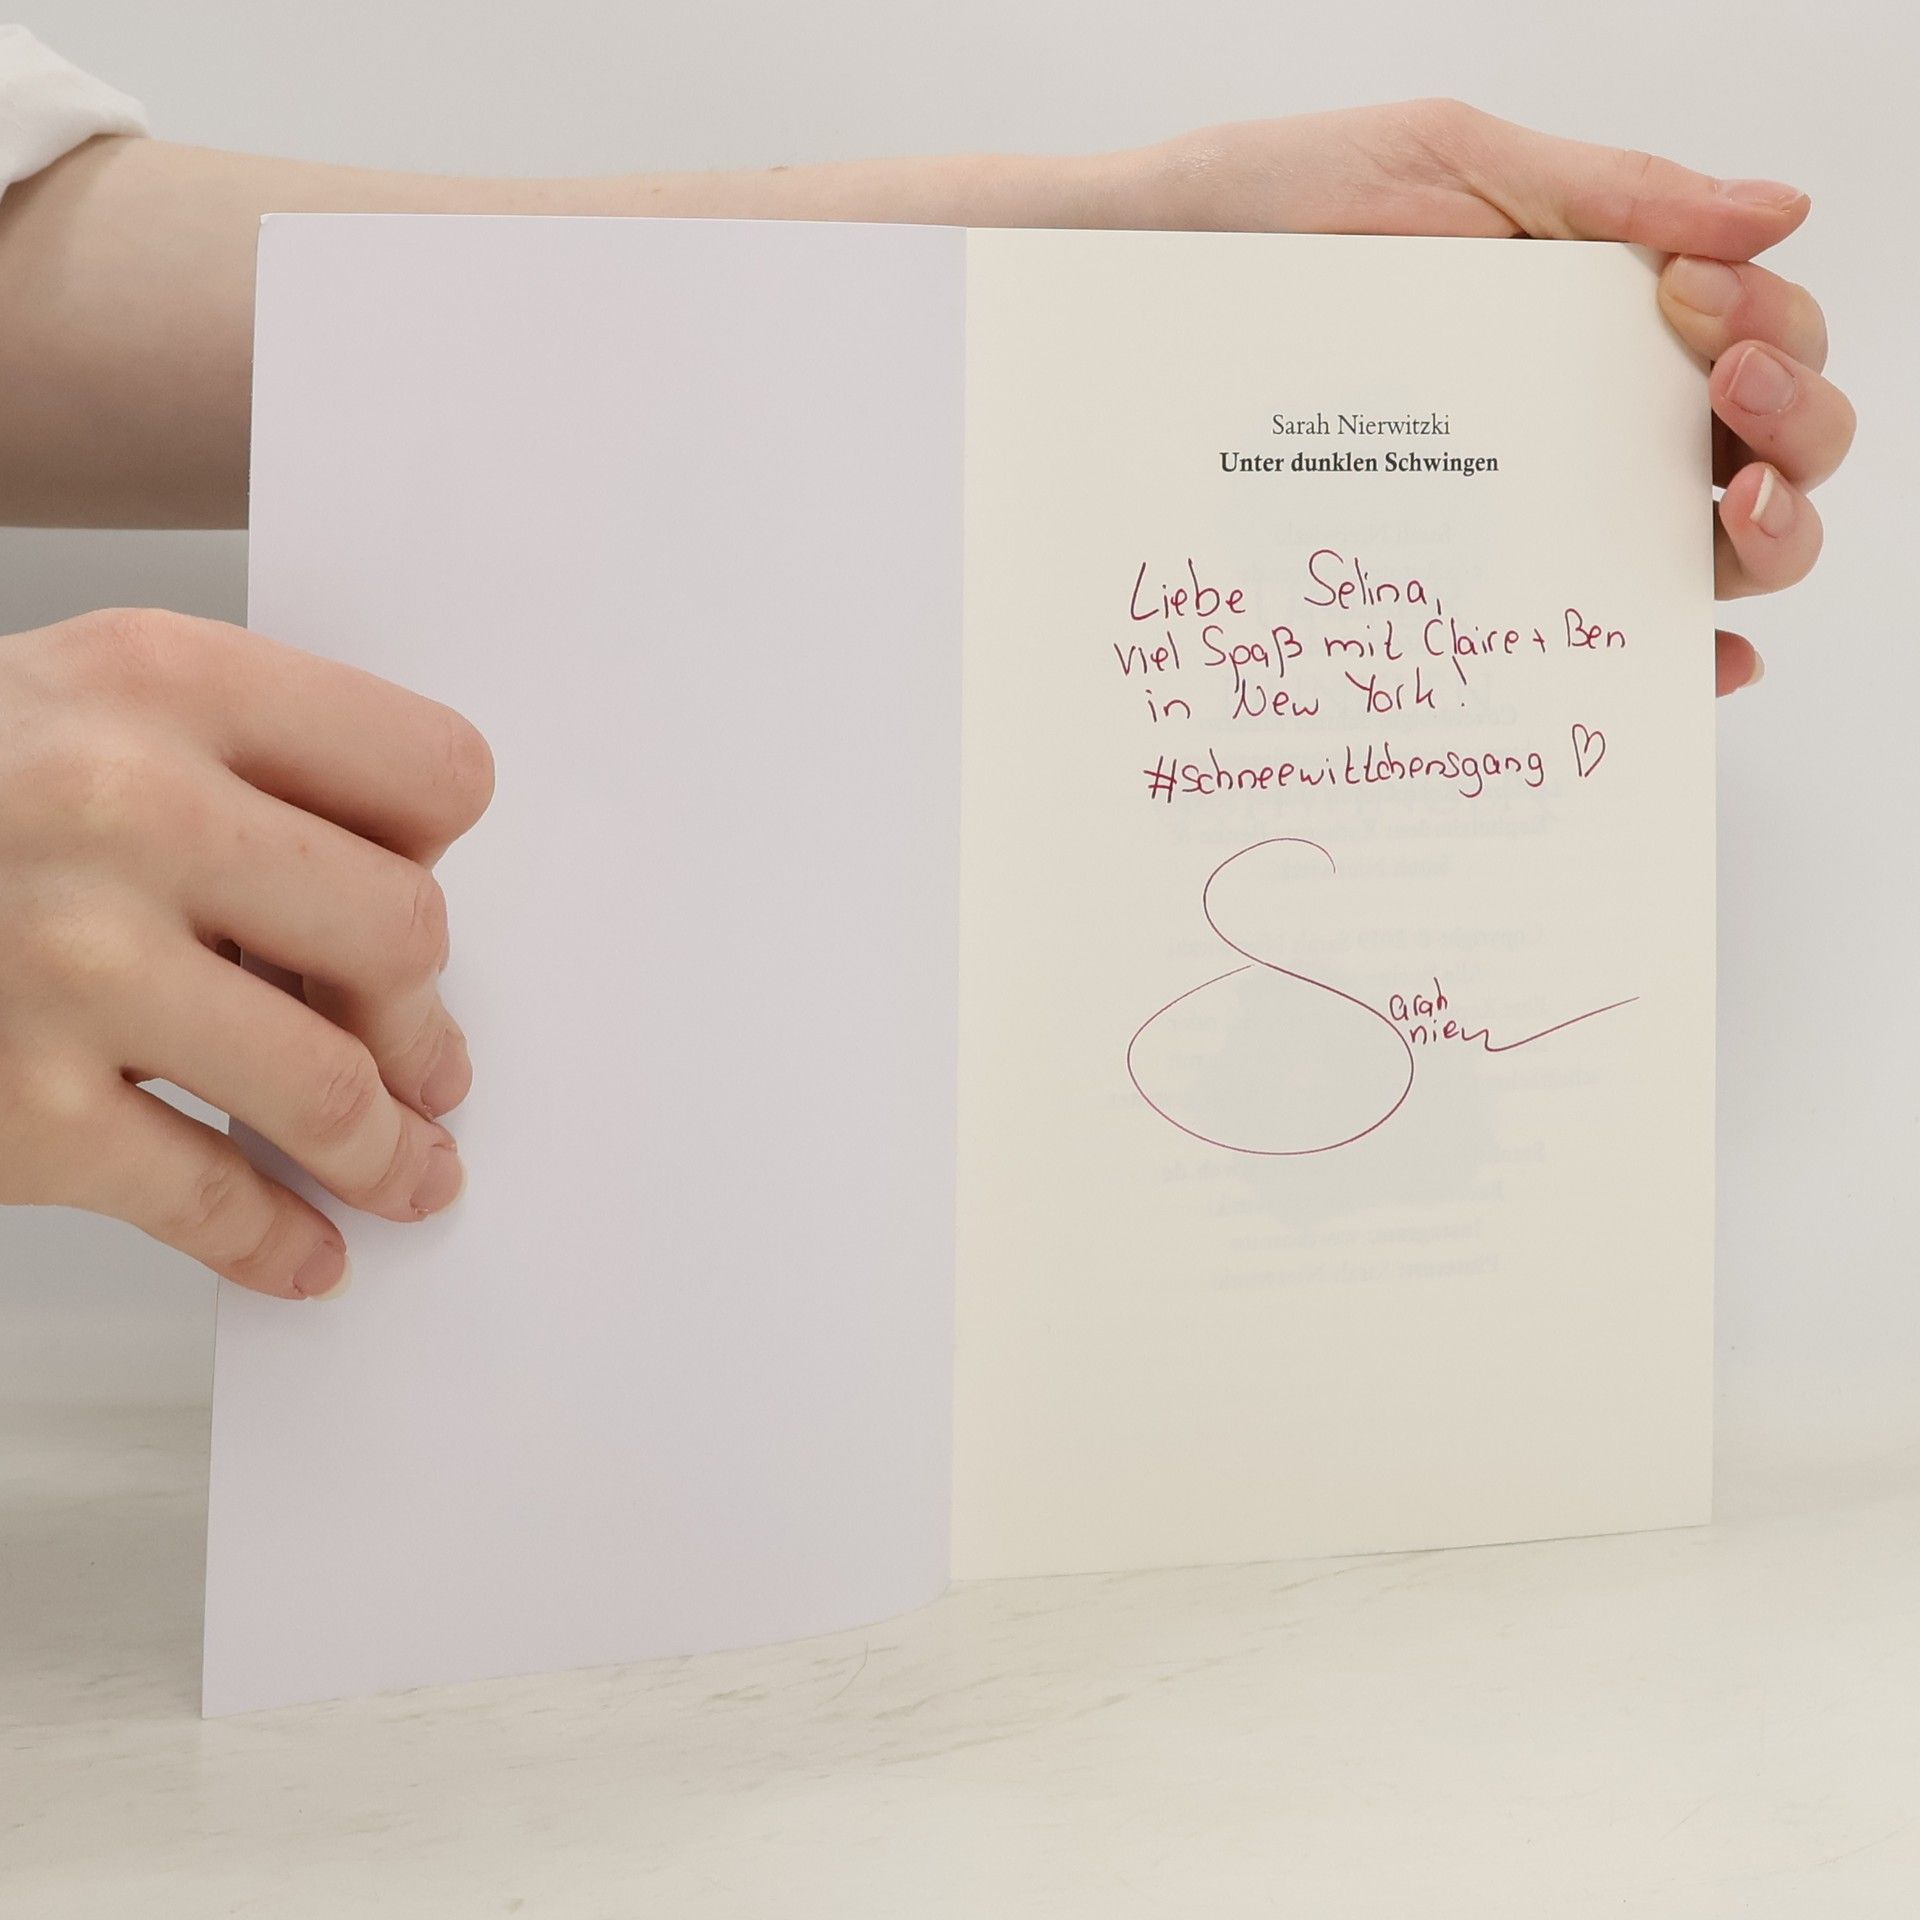 Sarah Nierwitzki
Unter dunklen Schwingen
Liebe Selina,
viel Spaß mit Claire + Ben
in New York!
#schneewittchensgang ♡
Sarah
nier